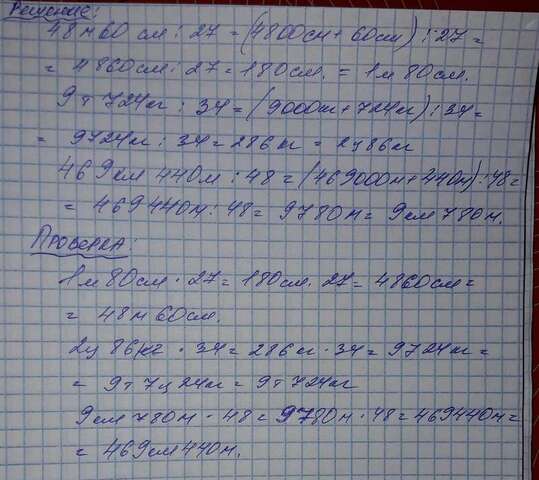 Решение:
48 м 60 см : 27 = (4800см + 60см) : 27 =
= 4860см : 27 = 180см. = 1м 80см.
9 т 724кг : 34 = (9000кг + 724кг) : 34 =
= 9724кг : 34 = 286 кг = 2ц 86кг
469км 440м : 48 = (469000м + 440м) : 48 =
= 469440м : 48 = 9780м = 9км 780м.
Проверка:
1м 80см · 27 = 180см · 27 = 4860см =
= 48м 60см.
2ц 86кг · 34 = 286кг · 34 = 9724кг =
= 9т 7ц 24кг = 9т 724кг
9км 780м · 48 = 9780м · 48 = 469440м =
= 469км 440м.